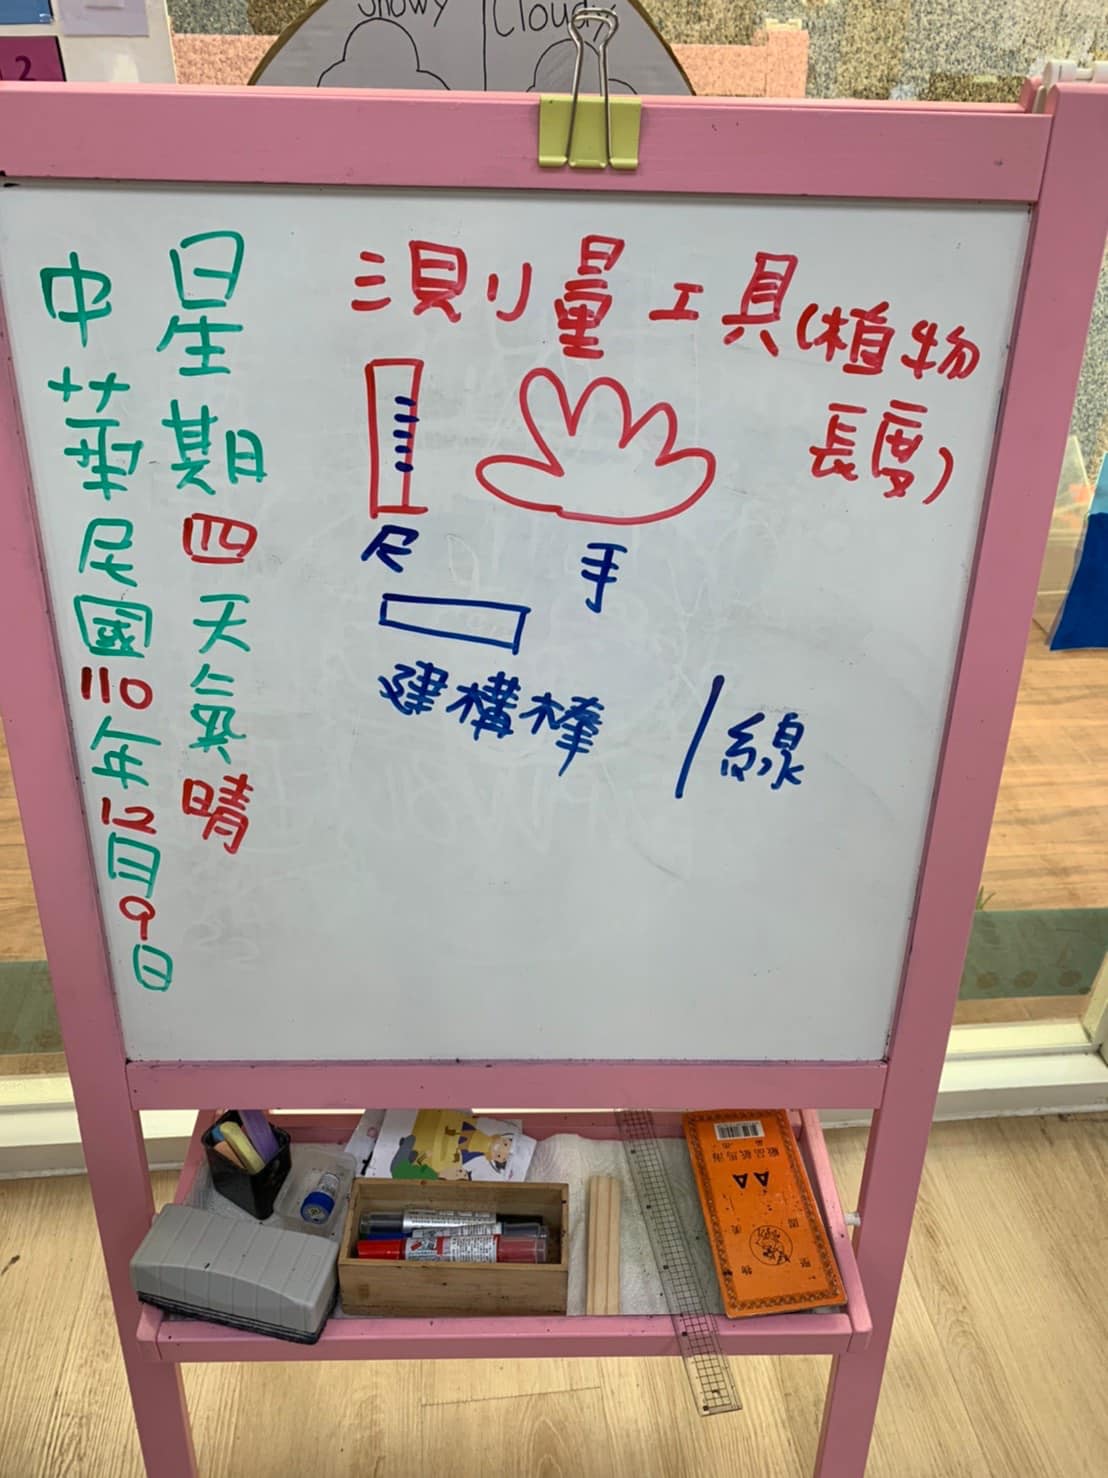 Snowy
Cloudy
中華民國110年12月9日
星期四天氣晴
測量工具(植物
長度)
尺
手
建構棒
線
AA